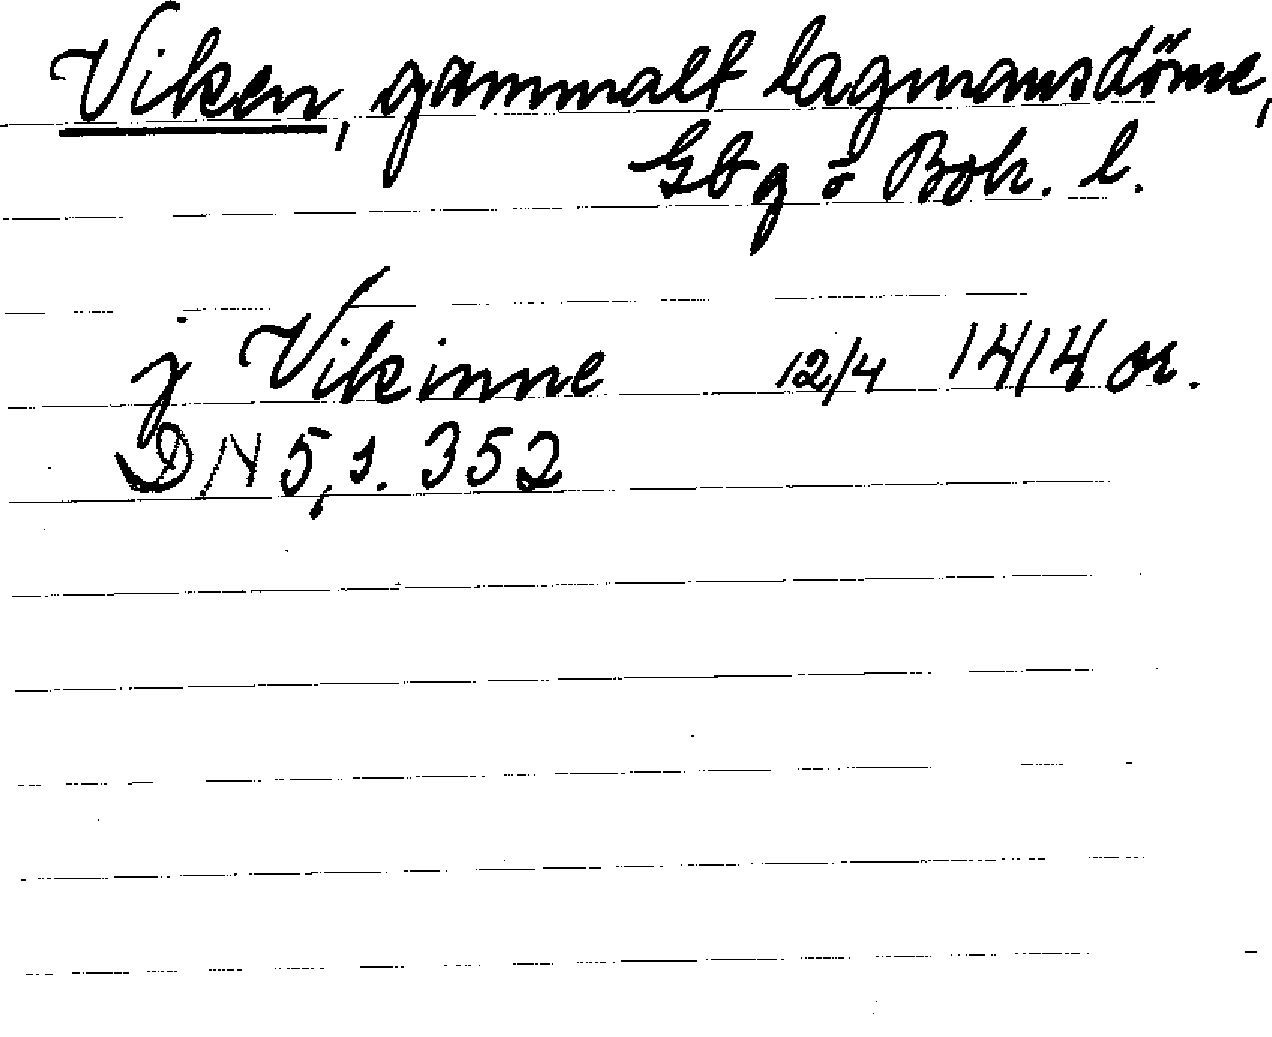 Viken, gammalt lagmansdöme,
Gbg o Boh. l.
j Vikinne 12/4 1414 or.
DN 5, s. 352